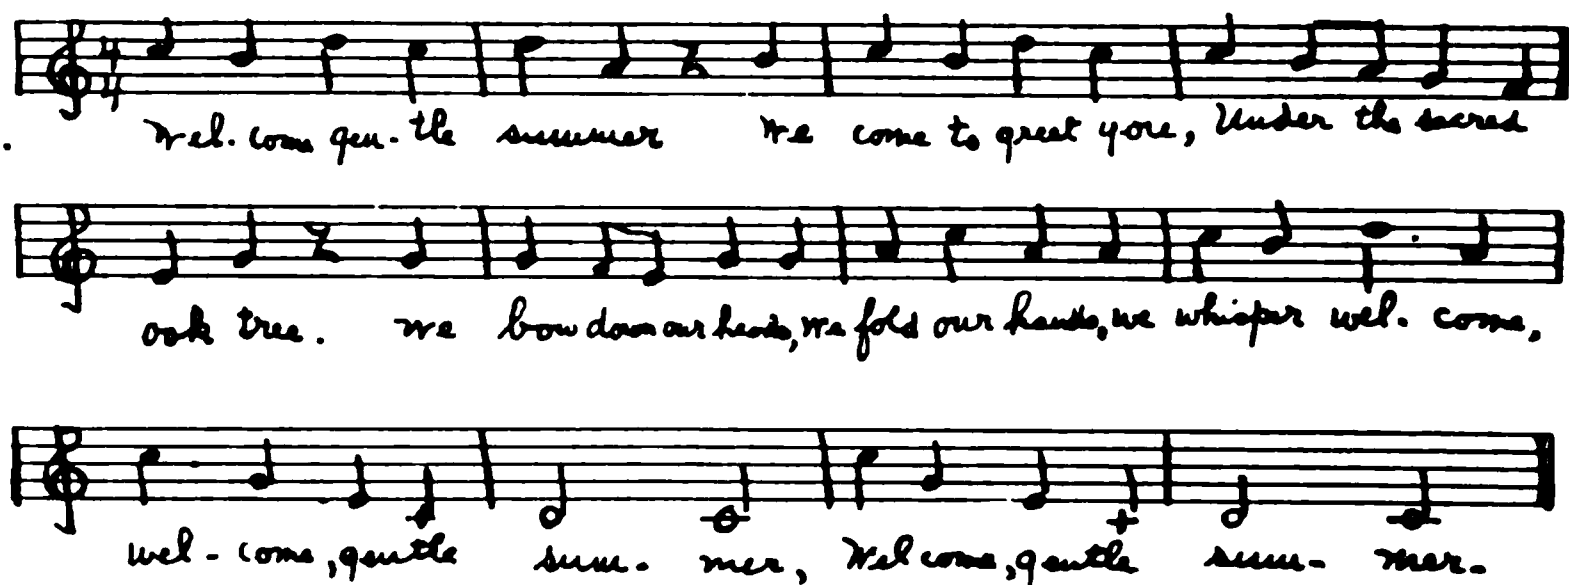 Wel. come gen. tle summer We come to greet you, Under the sacred
oak tree. We bow down our heads, We fold our hands, we whisper wel. come,
wel - come, gentle sum - mer, Welcome, gentle sum - mer.